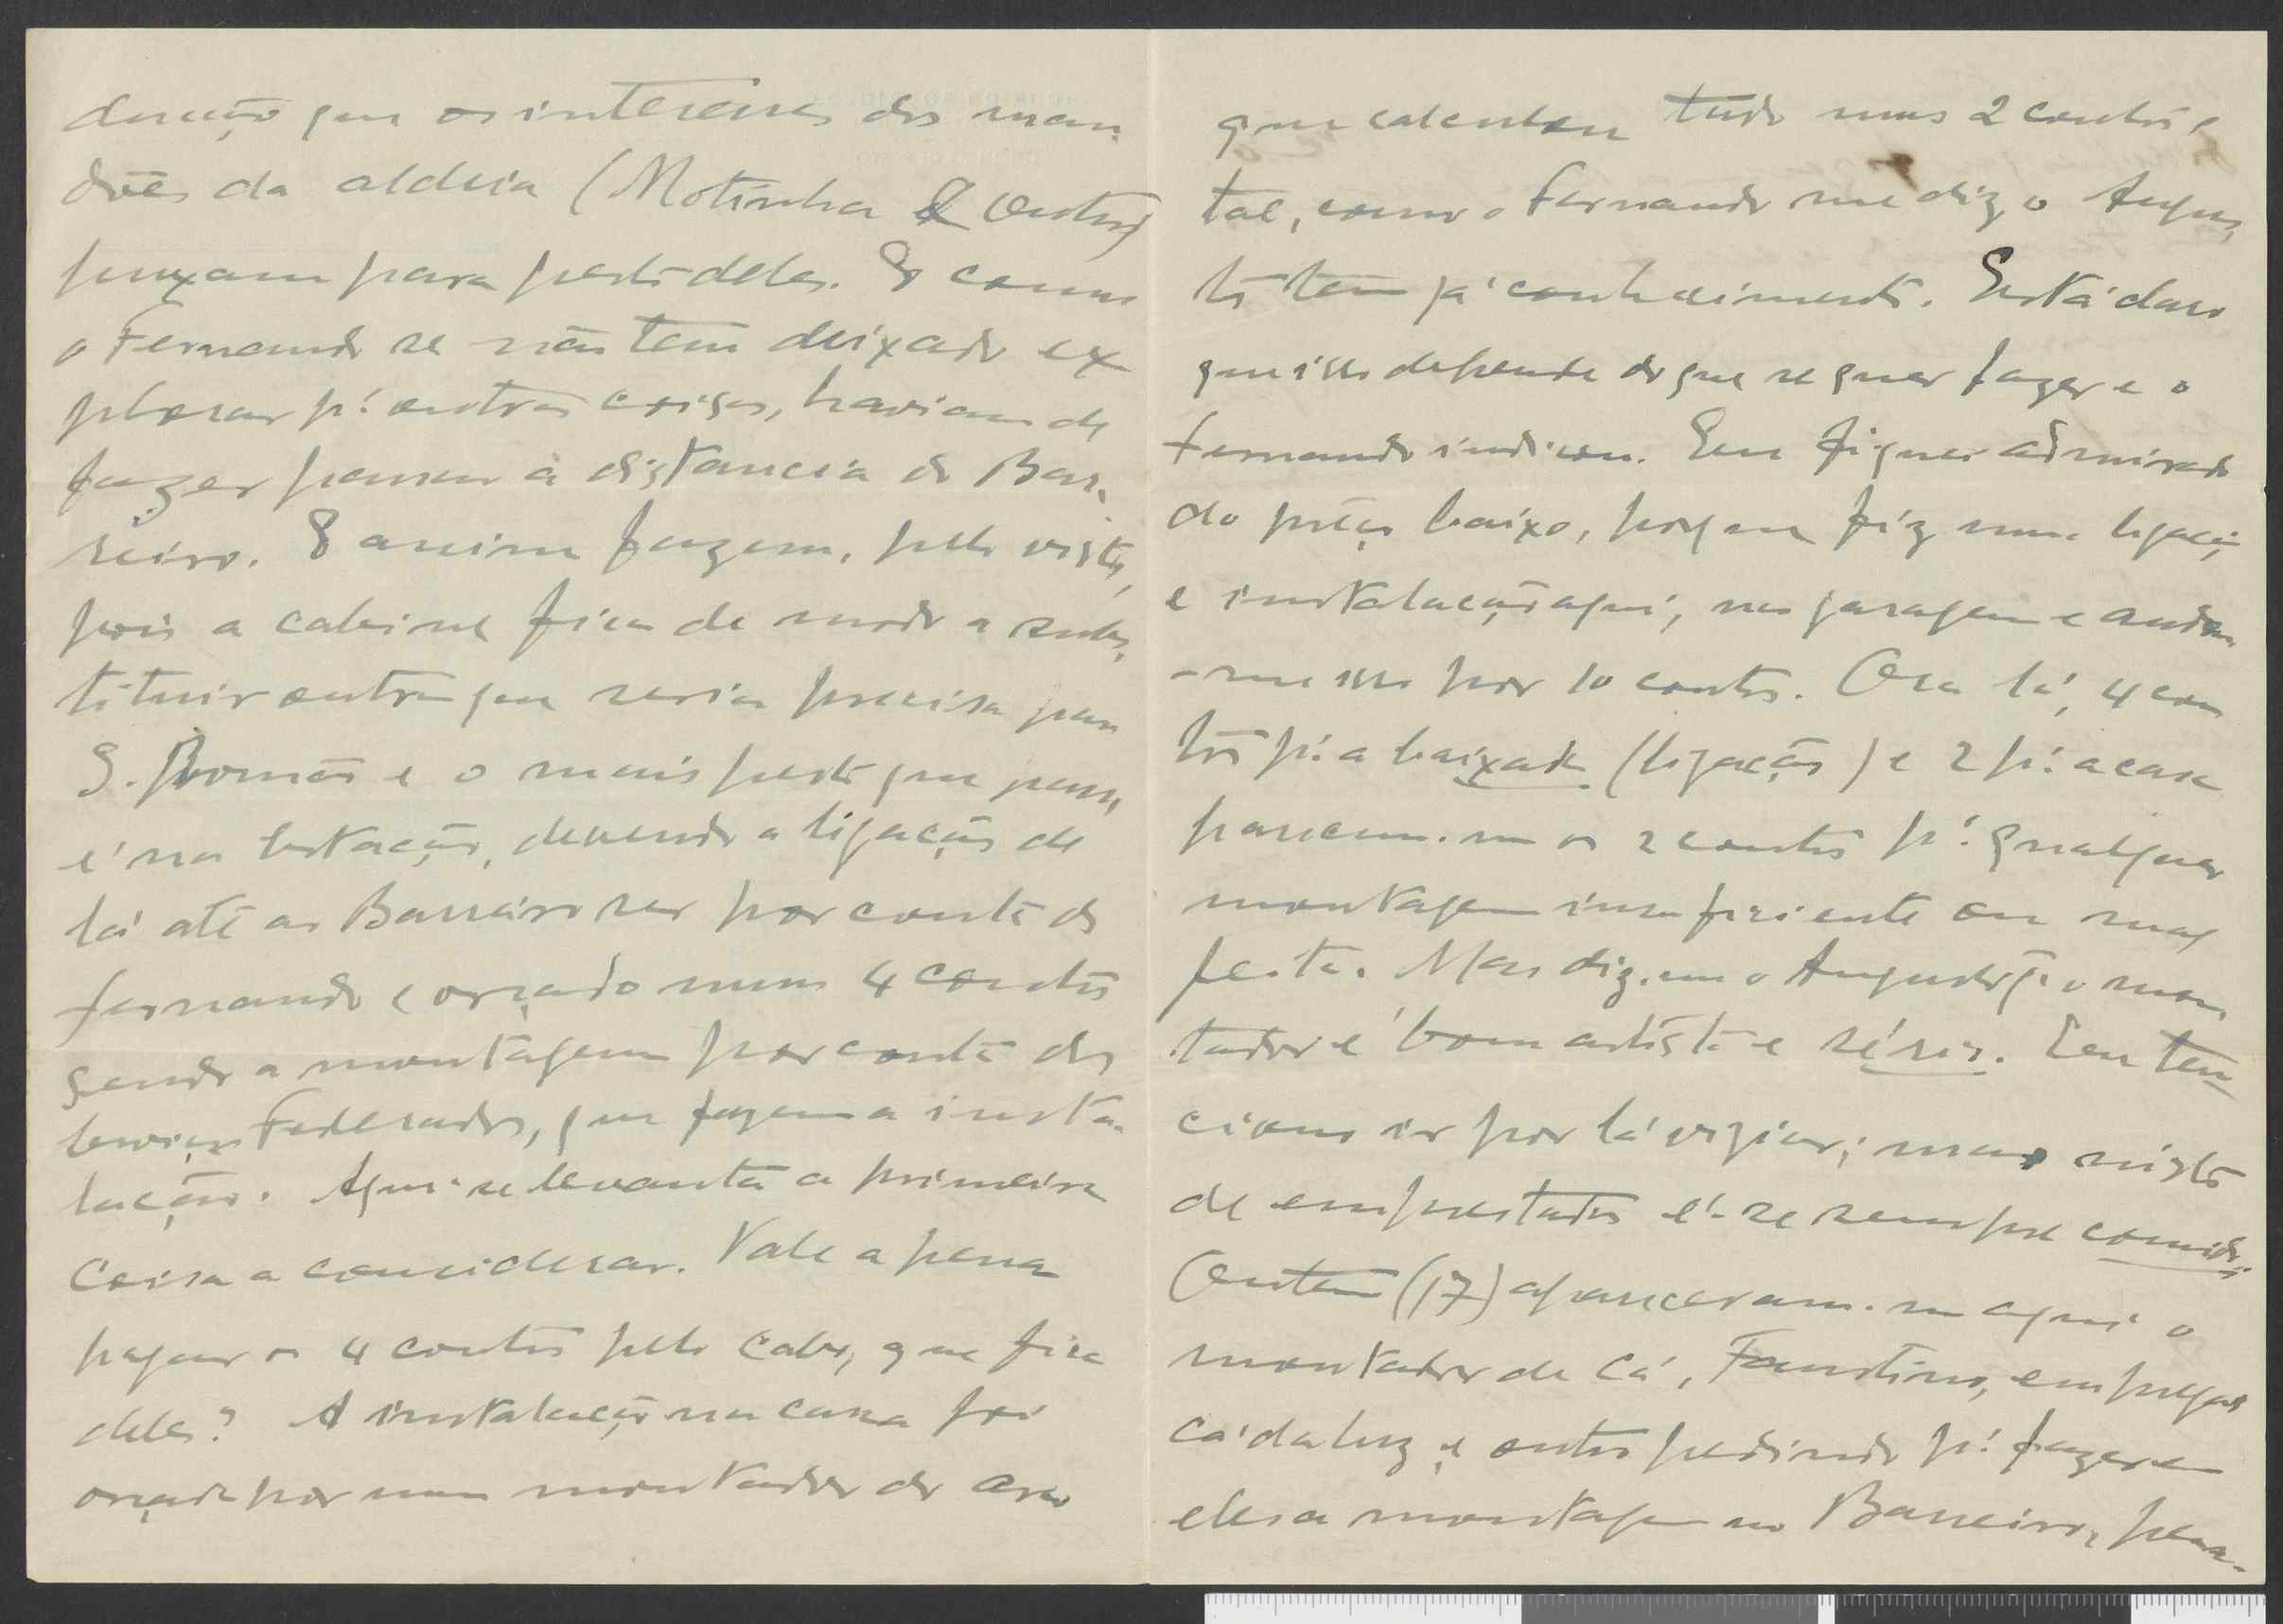 direcção que os interesses dos man-
dões da aldeia (Motinha & Outros)
puxam para perto deles. E como
o Fernando se não tem deixado ex
plorar p.ª outras coisas, haviam de
fazer pensar à distancia do Bar-
reiro. E assim fazem, pelo visto,
pois a cabine fica de modo a subs-
tituir outra que seria precisa para
S. Romão e o mais perto que passa,
é na Estação, devendo a ligação de
lá até ao Barreiro ser por conta do
Fernando e orçado nuns 4 contos
sendo a montagem por conta dos
Serviços Federados, que fazem a insta-
lação. Aqui se levanta a primeira
coisa a considerar. Vale a pena
pagar os 4 contos pelo cabo, que fica
deles? A instalação na casa foi
orçada por um montador do
que calculou tudo nuns 2 contos e
tal, como o Fernando me diz o Augus-
to tem já conhecimento. Está claro
que isso depende do que se quer fazer e o
Fernando indicou. Eu fiquei admirado
do preço baixo, porque fiz uma ligação
e instalação aqui, na garagem e andou-
-me isso por 10 contos. Ora lá, 4 con
tos p.ª a baixada (ligação) e 2 p.ª a casa
parecem-me os 2 contos p.ª qualquer
montagem insuficiente ou mal
feita. Mas diz-me o Augusto q. o mon-
tador é bom artista e sério. Eu ten
ciono ir por lá vigiar; mas nisto
de empreitadas é-se sempre comido.
Ontem (17) apareceram-me aqui o
montador de cá, Faustino, empregado
cá da luz, e outro pedindo p.ª fazerem
eles a montagem no Barreiro,